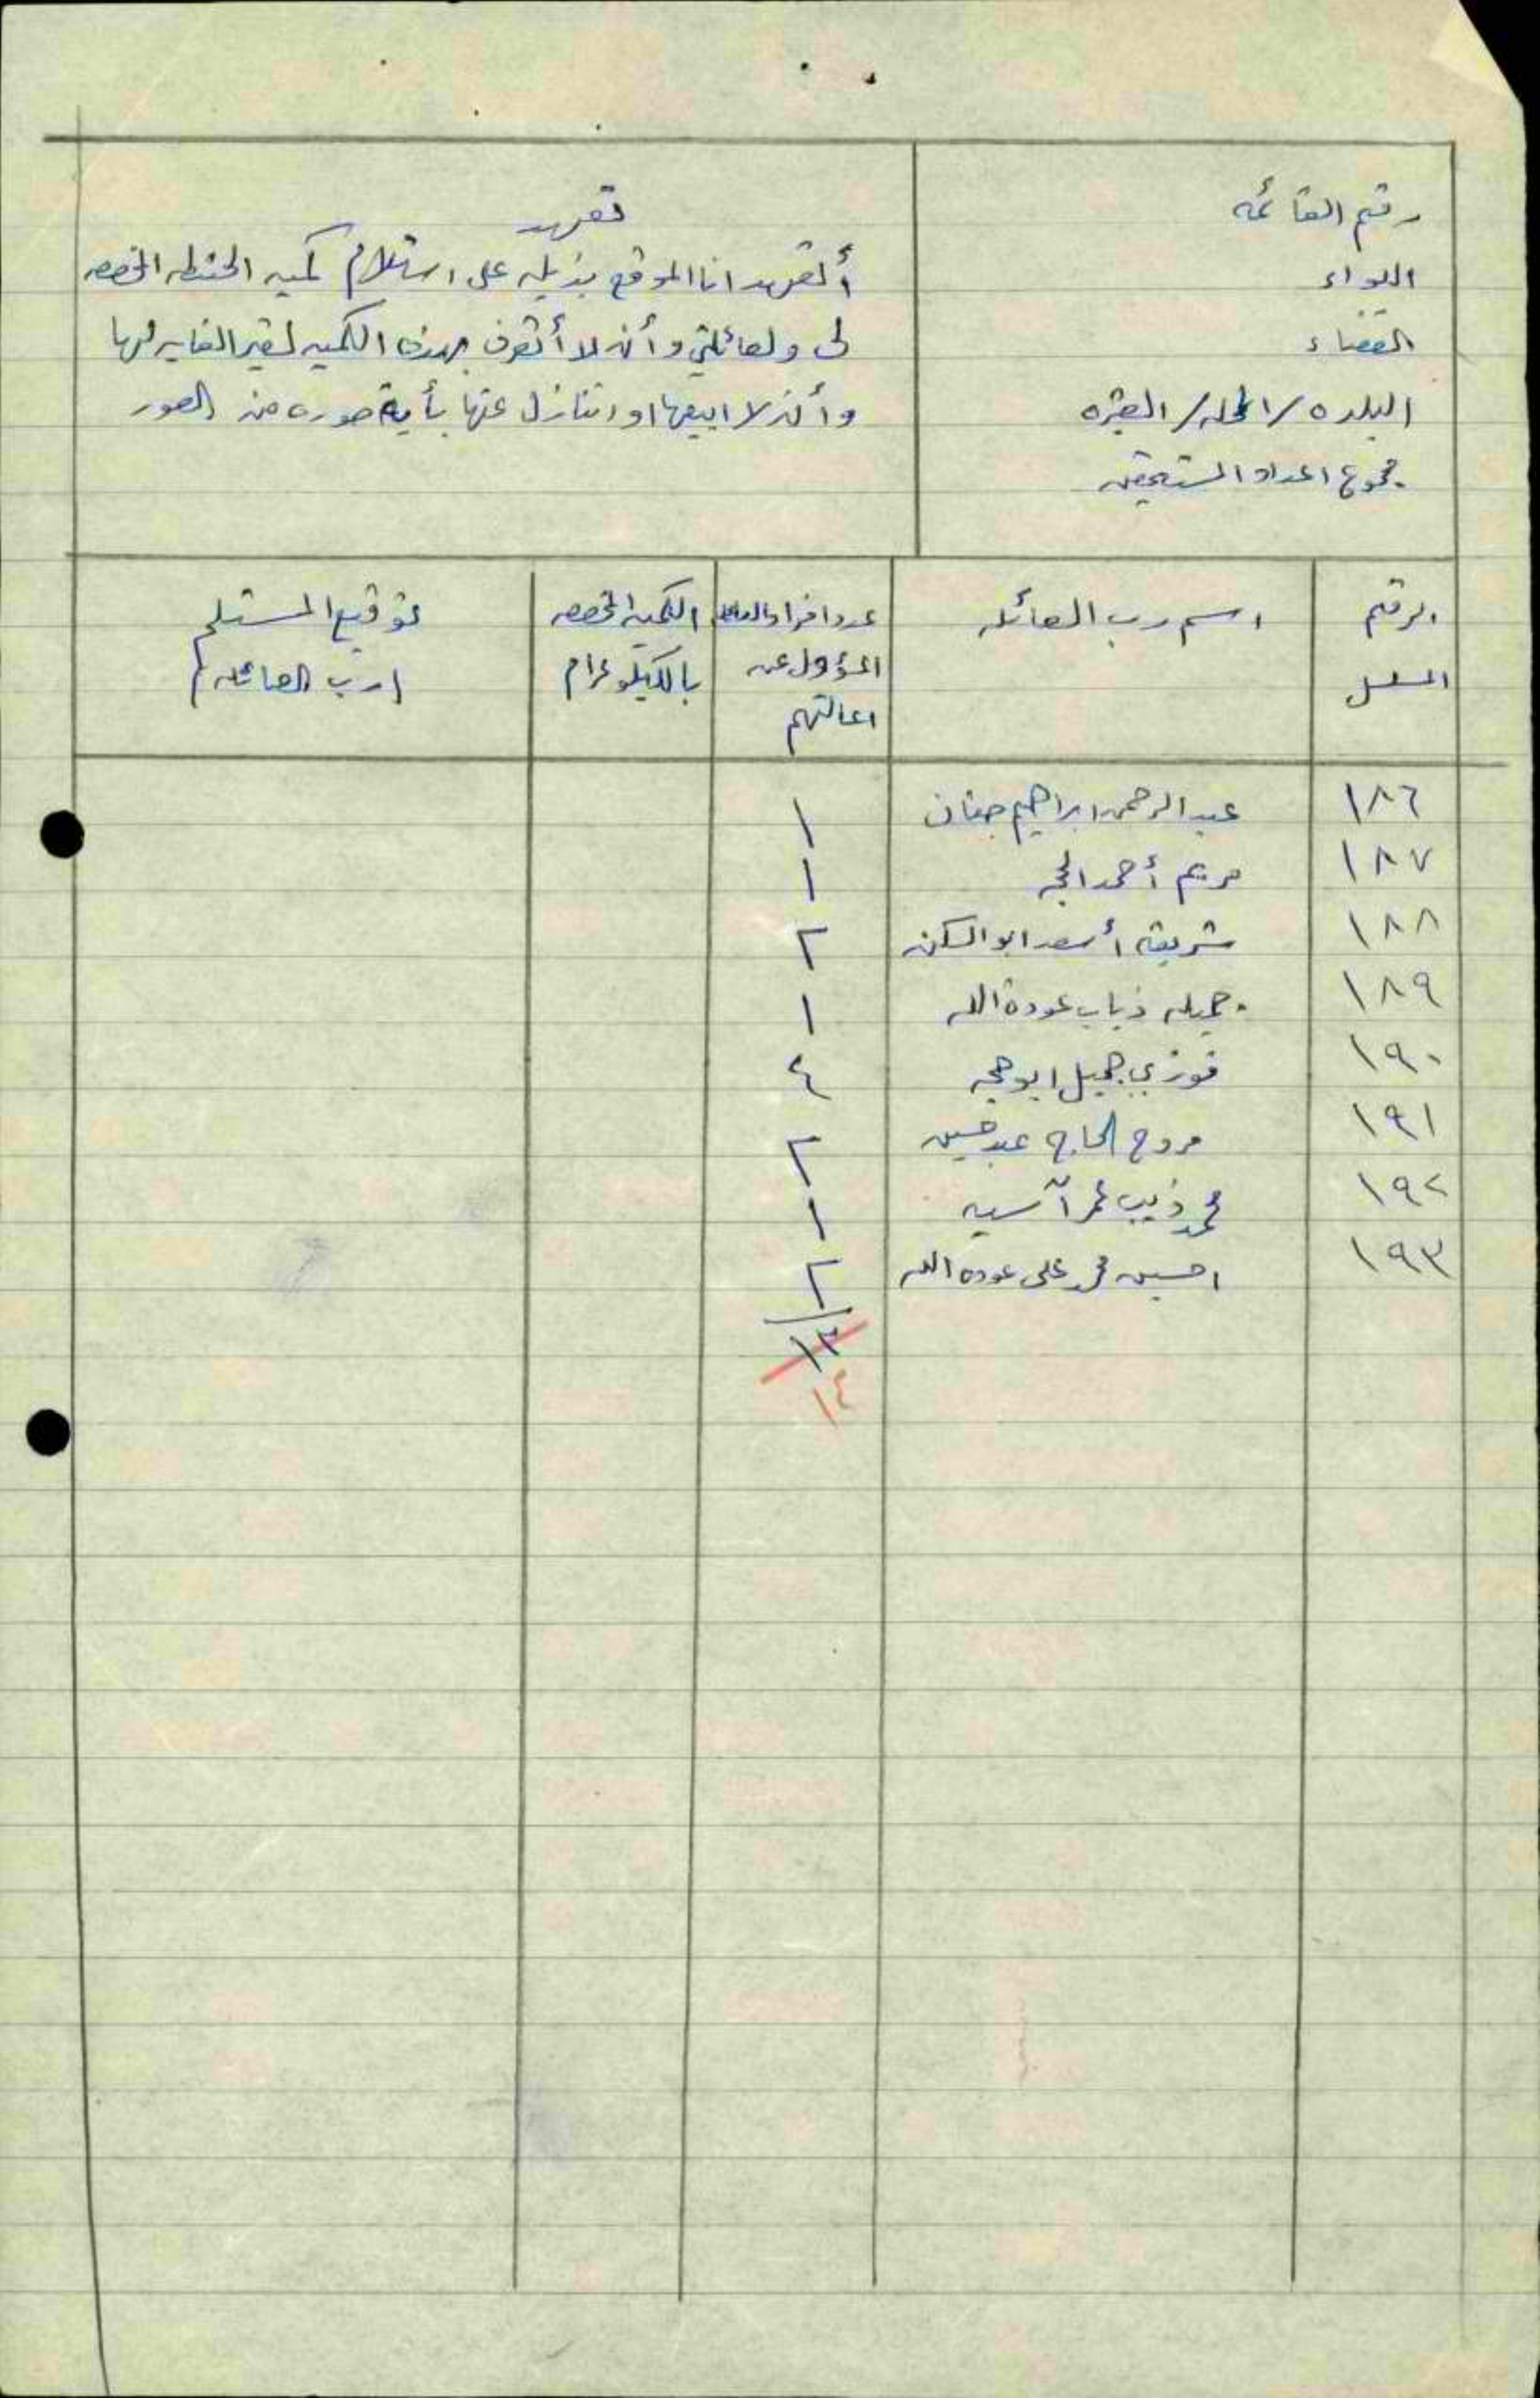 رقم القائمه
اللواء
القضاء
البلده / المحله / العشيره
مجموع اعداد المستحقين
تعهد
أتعهد انا الموقع بذيله على استلام كميه الحنطه المخصصه
لي ولعائلتي وأن لا أتصرف بهذه الكميه لغير الغايه لها
وأن لا ابيعها او اتنازل عنها بأية صوره من الصور
الرقم المسلسل
اسم رب العائله
عدد افراد العائله المسؤول عن اعالتهم
الكميه المخصصه بالكيلو غرام
توقيع المستلم (رب العائله)
١٨٦ عبد الرحمن ابراهيم ١
١٨٧ مريم أحمد ١
١٨٨ شريفه أسعد ابو السكن ٢
١٨٩ جميله ذياب عودة الله ١
١٩٠ فوزي جميل ابو حجه ٤
١٩١ الحاج عبد حسين ٢
١٩٢ محمد ذيب عمر آسيه ١
١٩٣ احسين محمد علي عوده الله ٢
١٣
١٤